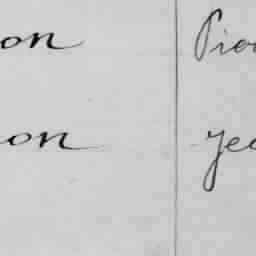 on Pio
on yea